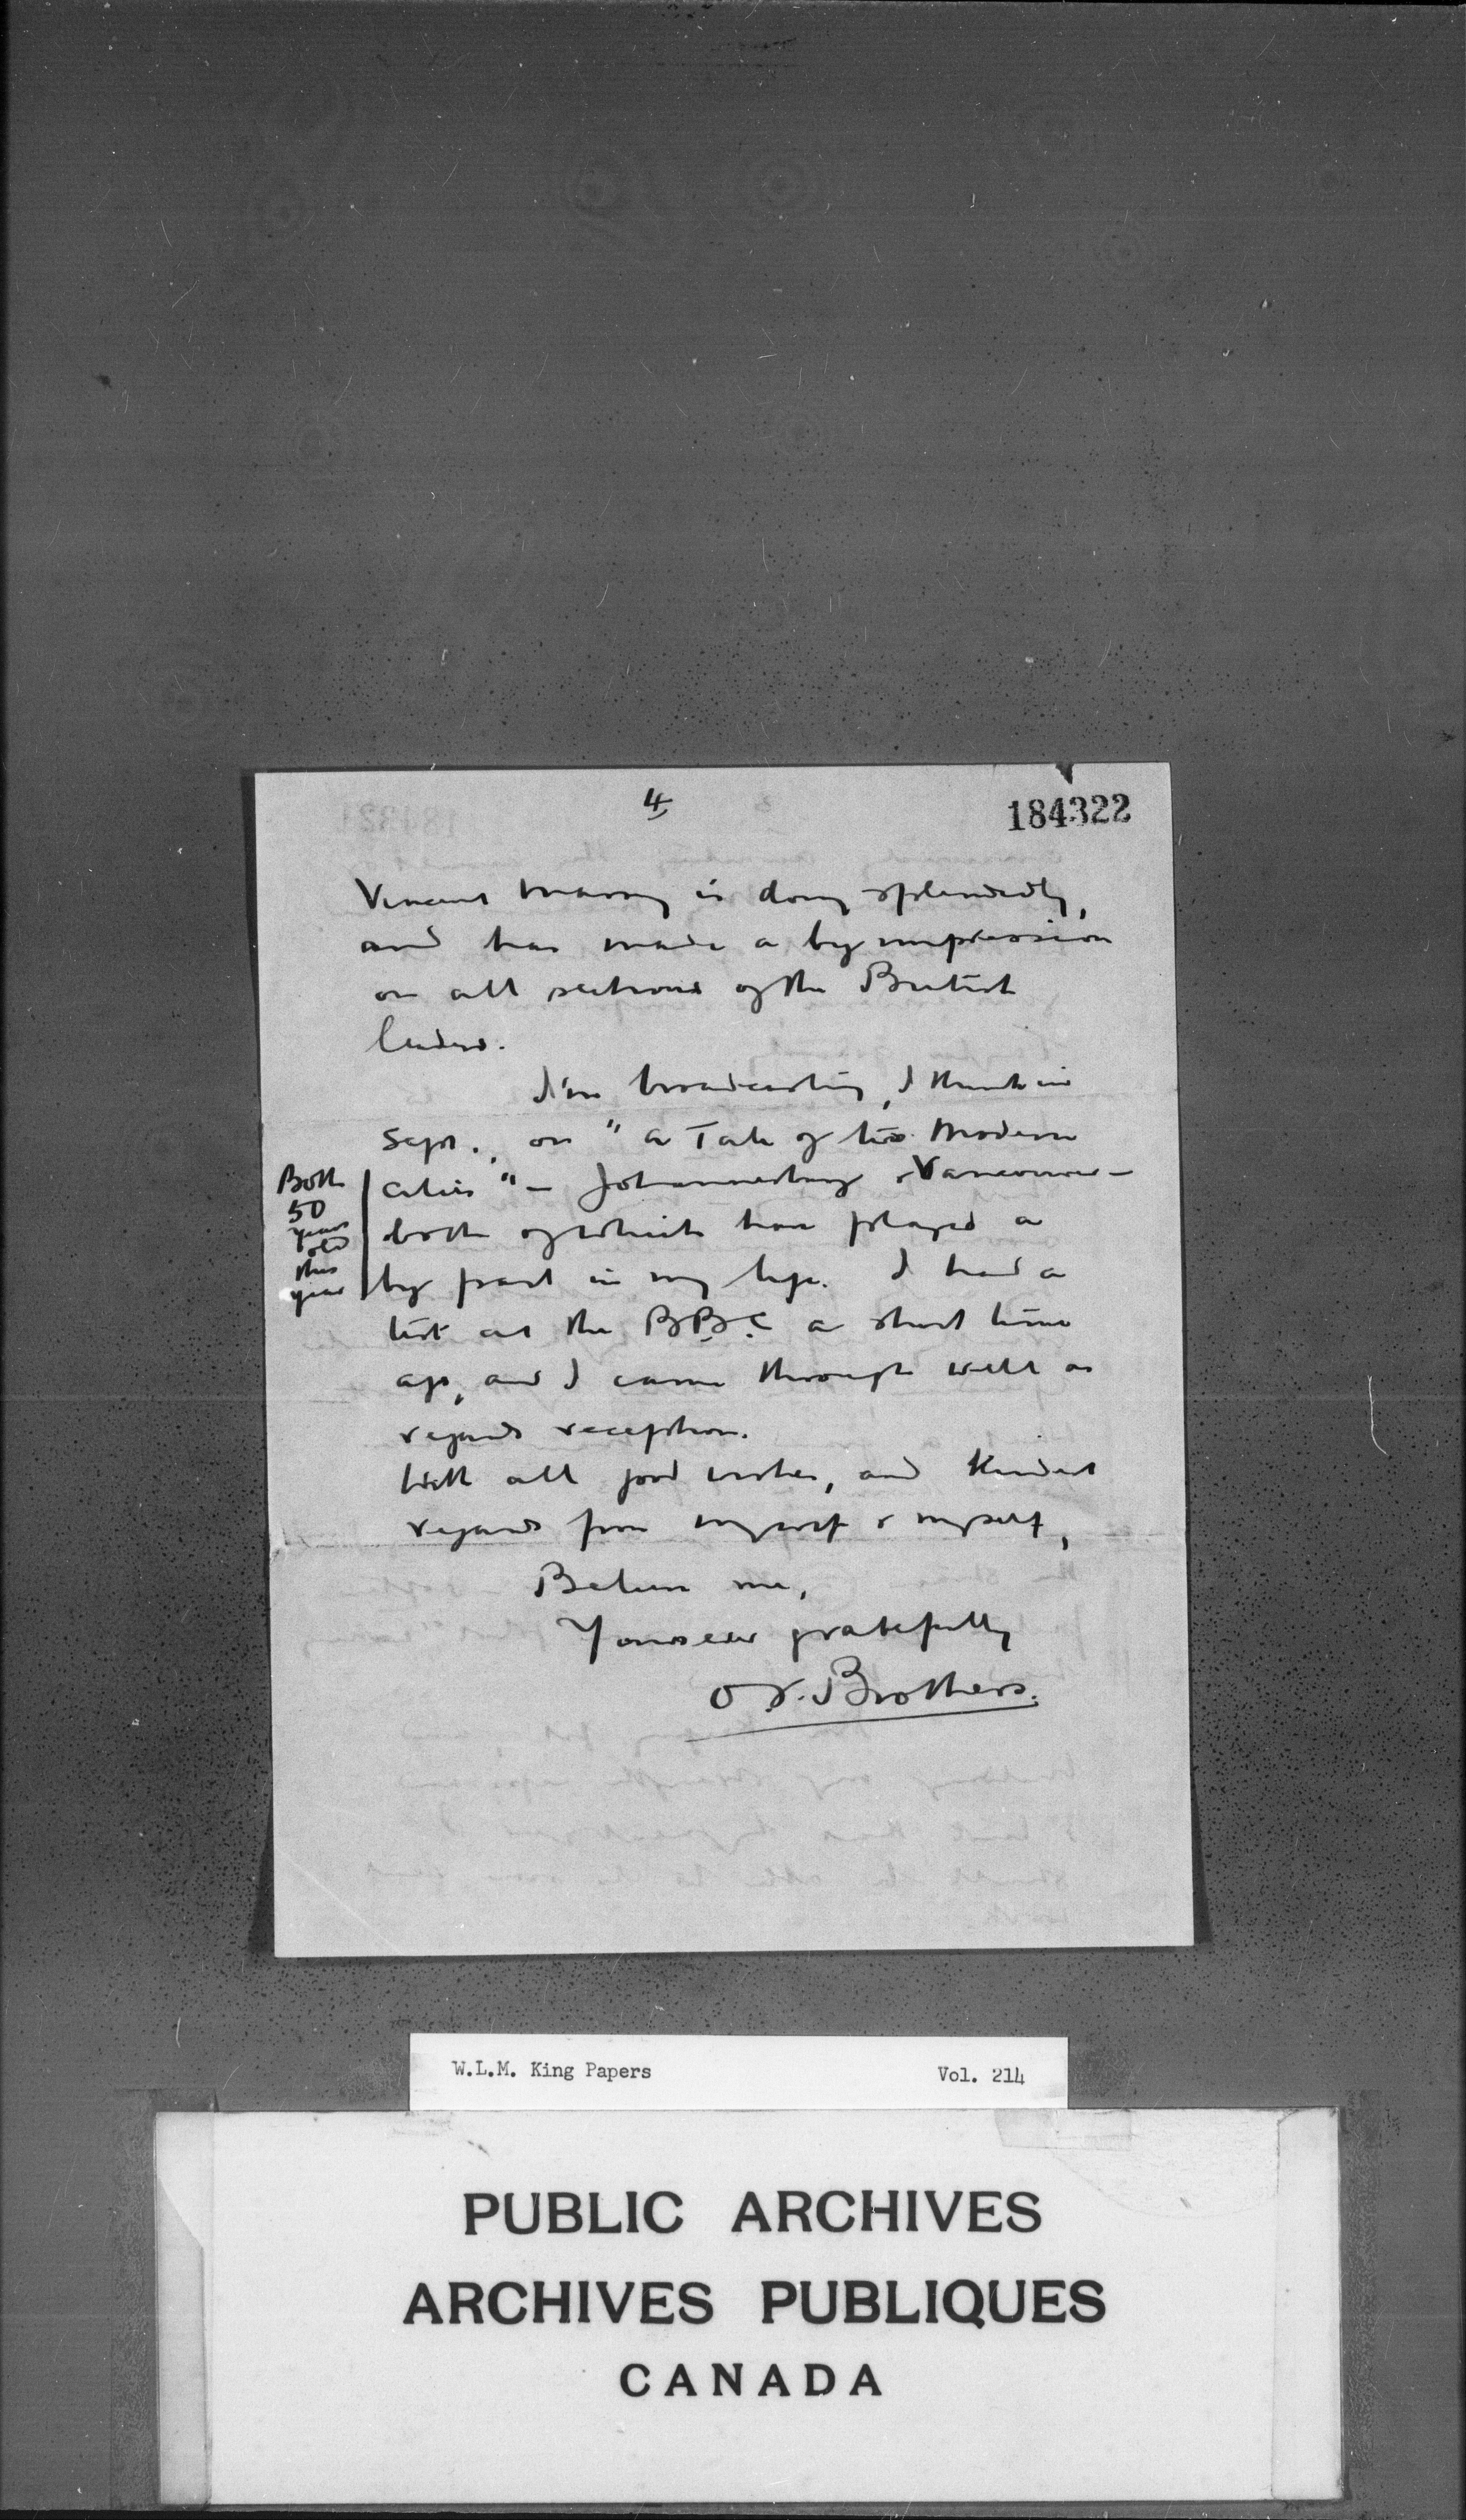 4
184322
Vincent Massey is doing splendidly,
and has made a big impression
on all sections of the British
leaders.
I'm broadcasting, I think in
Sept., on "a Tale of two Modern
Both 50 years old this year
cities" - Johannesburg & Vancouver -
both of which have played a
big part in my life. I had a
test at the B.B.C. a short time
ago, and I came through well as
regards reception.
With all good wishes, and kindest
regards from my wife & myself,
Believe me,
Yours ever gratefully
Brothers.
W.L.M. King Papers Vol. 214
PUBLIC ARCHIVES
ARCHIVES PUBLIQUES
CANADA